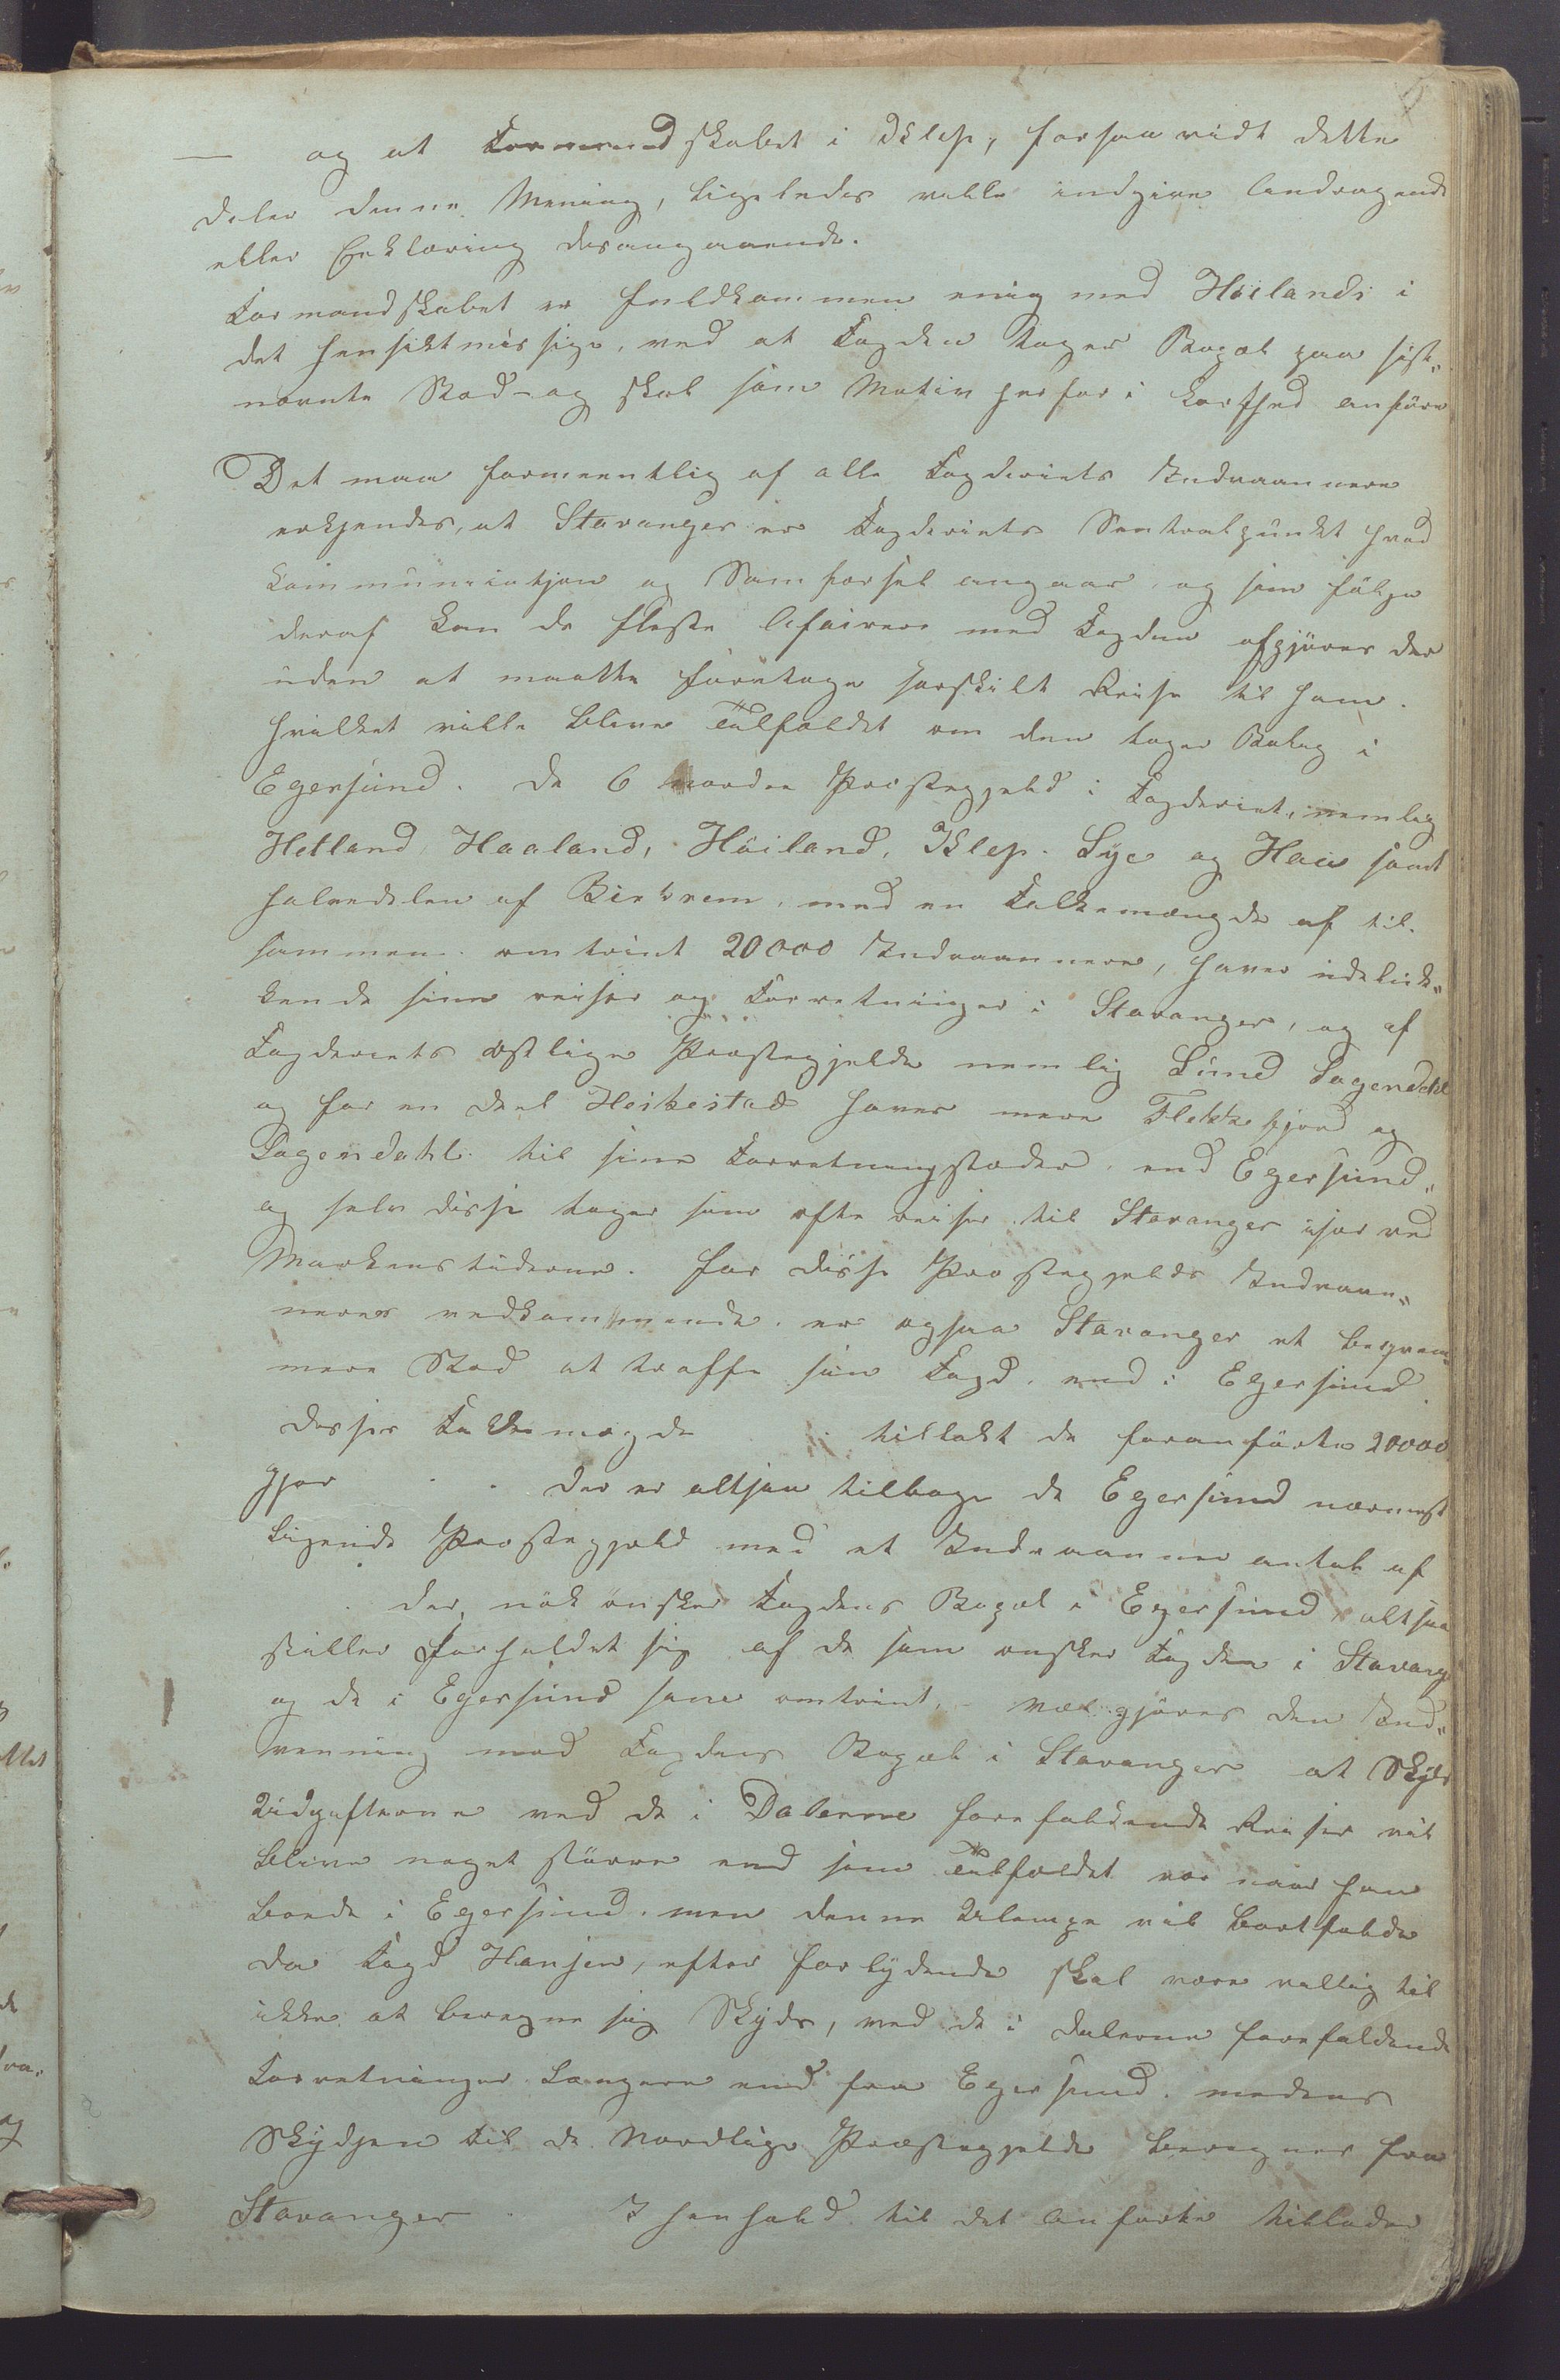 — og at Formandskabet i Klep, forsaavidt dette
deler denne Mening, ligeledes vilde indgive Andragende
eller Erklæring desangaaende.
Formandskabet er fuldkommen enig med Höilands i
det hensiktmessige, ved at Fogden tager Bopæl paa sist„
nævnte Stad – og skal som Motiv herfor i Korthed anföre
Det maa formeentlig af alle Fogderiets Indvaannere
erkjendes, at Stavanger er Fogderiets Sentralpunkt hvad
Kommuniatjon og Samfærsel angaar, og som fölge
deraf kan de fleste Afairer med Fogden afgjöres der
uden at maatte foretage særskilt Reise til ham.
hvilket vilde blive Tilfældet om den tager Bolig i
Egersund. De 6 nordre Præstegjeld i Fogderiet, nemlig
Hetland, Haaland, Höiland, Klep. Lye og Haa samt
halvedelen af Birkrem, med en Folkemængde af til-
sammen omtrint 20000 Indvaannere, haver udeluk„
kende sine reiser og Forretninger i Stavanger, og af
Fogderiets østlige Præstegjelde nemlig Lund Sogendahl
og for en deel Heskestad haver mere Flekkefjord og
Sogendahl til sine Forretningstæder, end Egersund„
og selv disse tager som ofte reiser til Stavanger især ved
Markenstiderne. For disse Præstegjelds Indvaan„
neres vedkommende er ogsaa Stavanger et beqvem„
mere Stad at træffe sin Fogd, end i Egersund.
disses Folkemægde tillakt de foranförte 20000
gjør Der er altsaa tilbage de Egersund nærmest
ligende Præstegjeld med et Indvaanner antal af
der, nok önsker Fogdens Bopæl i Egersund, altsaa
stiller forholdet sig af de som ønsker Fogden i Stavang
og de i Egersund som omtrint. Vel gjöres den Ind„
venning mod Fogdens Bopæl i Stavanger at Skyds
Udgifterne ved de i Dalerne forefaldende Reiser vil
blive noget större end som Tilfældet var naar han
boede i Egersund. men denne Ulempe vil bortfalde
da Fogd Hansen, efter forlydende skal være villig til
ikke at beregne sig Skyds, ved de i dalerne forefaldende
Forretninger længere end fra Egersund. medens
Skydsen til de Nordlige Præstegjelde beregnes fra
Stavanger. I henhold til det Anförte tillader